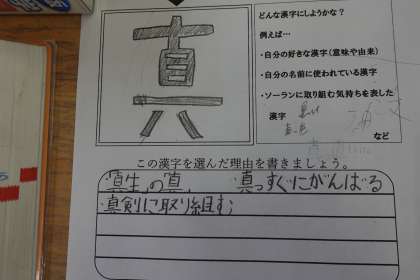 真
どんな漢字にしようかな？
例えば…
・自分の好きな漢字（意味や由来）
・自分の名前に使われている漢字
・ソーランに取り組む気持ちを表した
漢字
など
この漢字を選んだ理由を書きましょう。
・真生の真、 真っすぐにがんばる
・真剣に取り組む